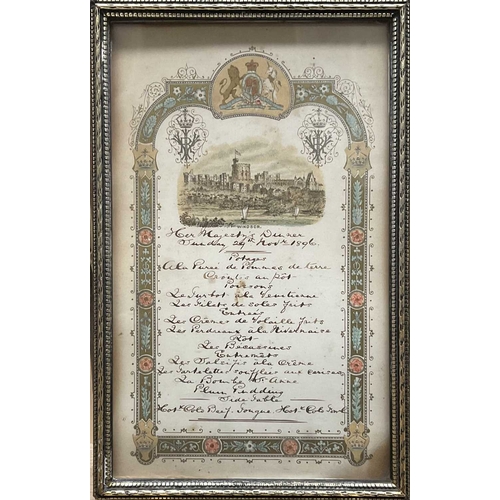 WINDSOR
Her Majesty's Dinner
Sunday 29th Novr 1896
Potages
A la Purée de Pommes de terre
Croutes au Pot
Poissons
Le Turbot à la
Les Filets de Soles frits
Entrées
Les Crèmes de Volaille frits
Les Perdreux à la Nivernaise
Rôt
Les Bécassines
Entremêts
Les Salsifis à la Crème
Les Tartelettes soufflées aux cerises
La Bombe St. Anne
Plum Pudding
Side Table
Hot & Cold Beef Tongue Hot & Cold Fowl